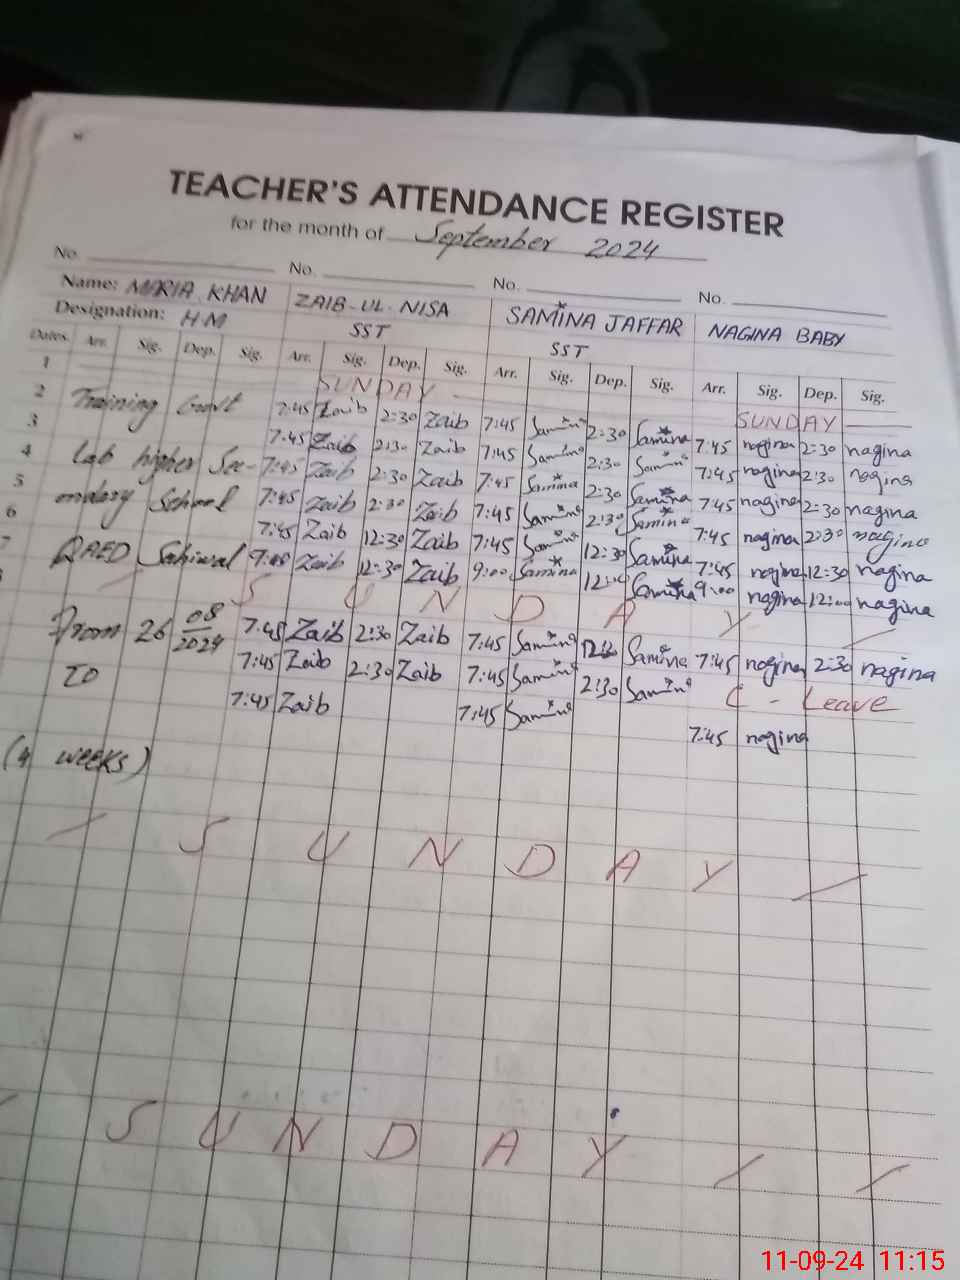 TEACHER'S ATTENDANCE REGISTER
for the month of September 2024
No. No. No. No.
Name: MARIA KHAN ZAIB-UL-NISA SAMINA JAFFAR NAGINA BABY
Designation: H.M SST SST
Dates. Arr. Sig. Dep. Sig. Arr. Sig. Dep. Sig. Arr. Sig. Dep. Sig. Arr. Sig. Dep. Sig.
1 SUNDAY SUNDAY
2 Training Govt 7:45 Zaib 2:30 Zaib 7:45 Samina 2:30 Samina 7:45 nagina 2:30 nagina
3 7:45 Zaib 2:30 Zaib 7:45 Samina 2:30 Samina 7:45 nagina 2:30 nagina
4 Lab higher Sec- 7:45 Zaib 2:30 Zaib 7:45 Samina 2:30 Samina 7:45 nagina 2:30 nagina
5 ondary School 7:45 Zaib 2:30 Zaib 7:45 Samina 2:30 Samina 7:45 nagina 2:30 nagina
6 7:45 Zaib 12:30 Zaib 7:45 Samina 12:30 Samina 7:45 nagina 12:30 nagina
7 QAED Sahiwal 7:45 Zaib 12:30 Zaib 9:00 Samina 12:00 Samina 9:00 nagina 12:00 nagina
S U N D A Y
From 26 08 2024 7:45 Zaib 2:30 Zaib 7:45 Samina Samina 7:45 nagina 2:30 nagina
TO 7:45 Zaib 2:30 Zaib 7:45 Samina 2:30 Samina C - Leave
7:45 Zaib 7:45 Samina 7:45 nagina
(4 WEEKS)
S U N D A Y
S U N D A Y
11-09-24 11:15